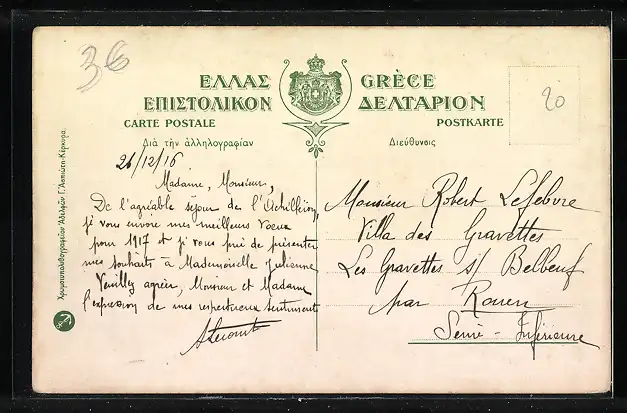 36
ΕΛΛΑΣ GRÈCE
ΕΠΙΣΤΟΛΙΚΟΝ ΔΕΛΤΑΡΙΟΝ
CARTE POSTALE POSTKARTE
Διὰ τὴν ἀλληλογραφίαν Διεύθυνσις
20
26/12/16
Madame, Monsieur,
De l'agréable séjour de l'Achilleion,
je vous envoie mes meilleurs Voeux
pour 1917 et je vous prie de présenter
mes souhaits à Mademoiselle Julienne
Veuillez agréer, Monsieur et Madame
l'expression de mes respectueux sentiments
Monsieur Robert Lefebvre
Villa des Gravettes
Les Gravettes s/ Belbeuf
par Rouen
Seine-Inférieure
Χρωμοτυπολιθογραφεῖον Ἀδελφῶν Γ. Ἀσπιώτη-Κέρκυρα.